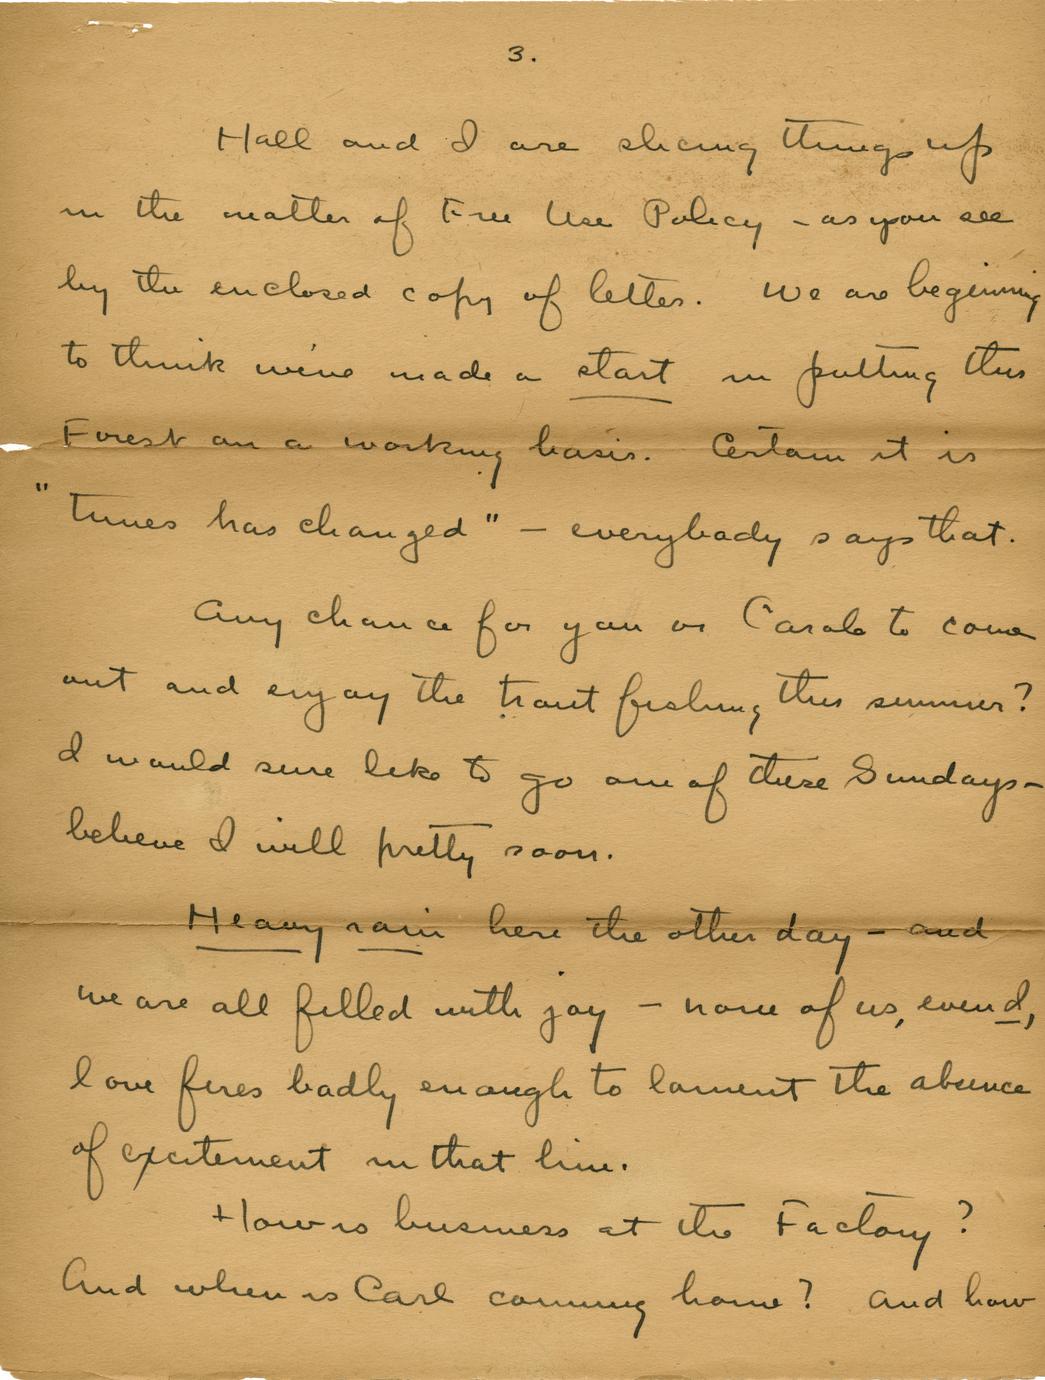 3.
Hall and I are slicing things up
in the matter of Free Use Policy - as you see
by the enclosed copy of letter. We are beginning
to think we've made a start in putting this
Forest on a working basis. Certain it is
"times has changed" - everybody says that.
Any chance for you or Carolo to come
out and enjoy the trout fishing this summer?
I would sure like to go one of these Sundays-
believe I will pretty soon.
Heavy rain here the other day - and
we are all filled with joy - none of us, even I,
love fires badly enough to lament the absence
of excitement in that line.
How is business at the Factory?
And when is Carl coming home? And how